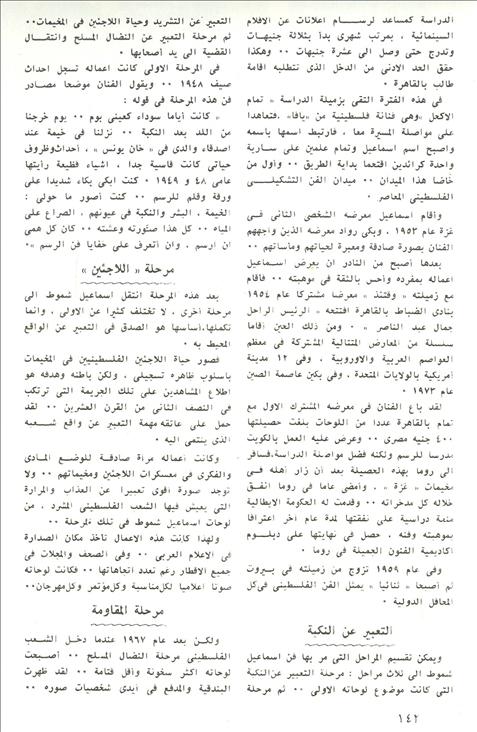 الدراسة كمساعد لرسام اعلانات عن الافلام
السينمائية ، بمرتب شهرى بدأ بثلاثة جنيهات
وتدرج حتى وصل الى عشرة جنيهات ٠٠ وهكذا
حقق الحد الادنى من الدخل الذى تتطلبه اقامة
طالب بالقاهرة ٠
فى هذه الفترة التقى بزميلة الدراسة « تمام
الاكحل »وهى فنانة فلسطينية من «يافا» ،فتعاهدا
على مواصلة المسيرة معا ، فارتبط اسمها باسمه
واصبح اسم اسماعيل وتمام علمين على سارية
واحدة كرائدين اقتحما بداية الطريق ٠٠ وأول من
خاضا هذا الميدان ٠٠ ميدان الفن التشكيلى
الفلسطينى المعاصر ٠
وأقام اسماعيل معرضه الشخصى الثانى فى
غزة عام ١٩٥٣ ، وبكى رواد معرضه الذين واجههم
الفنان بصورة صادقة ومعبرة لحياتهم ومأساتهم ٠٠
بعدها أصبح من النادر ان يعرض اسماعيل
اعماله بمفرده وأحس بالثقة فى موهبته ٠٠ فأقام
مع زميلته « وقتئذ » معرضا مشتركا عام ١٩٥٤
بنادى الضباط بالقاهرة افتتحه « الرئيس الراحل
جمال عبد الناصر » ٠ ومن ذلك الحين أقاما
سلسلة من المعارض المتتالية المشتركة فى معظم
العواصم العربية والاوروبية ، وفى ١٢ مدينة
أمريكية بالولايات المتحدة ، وفى بكين عاصمة الصين
عام ١٩٧٣ ٠
لقد باع الفنان فى معرضه المشترك الاول مع
تمام بالقاهرة عددا من اللوحات بلغت حصيلتها
٤٠٠ جنيه مصرى ٠٠ وعرض عليه العمل بالكويت
مدرسا للرسم ولكنه فضل مواصلة الدراسة،فسافر
الى روما بهذه الحصيلة بعد أن زار أهله فى
مخيمات « غزة » ، وأمضى عاما فى روما انفق
خلاله كل مدخراته ٠٠ وقدمت له الحكومة الايطالية
منحة دراسية على نفقتها لمدة عام آخر اعترافا
بموهبته وفنه ، حصل فى نهايتها على دبلوم
اكاديمية الفنون الجميلة فى روما ٠
وفى عام ١٩٥٩ تزوج من زميلته فى بيروت
ثم أصبحا « ثنائيا » يمثل الفن الفلسطينى فى كل
المحافل الدولية ٠
التعبير عن النكبة
ويمكن تقسيم المراحل التى مر بها فن اسماعيل
شموط الى ثلاث مراحل : مرحلة التعبير عن النكبة
التى كانت موضوع لوحاته الاولى ٠٠ ثم مرحلة
التعبير عن التشريد وحياة اللاجئين فى المخيمات٠٠
ثم مرحلة التعبير عن النضال المسلح وانتقال
القضية الى يد أصحابها ٠
فى المرحلة الاولى كانت اعماله تسجل احداث
صيف ١٩٤٨ ٠٠ ويقول الفنان موضحا مصادر
فن هذه المرحلة فى قوله :
« كانت أياما سوداء كعينى يوم ٠٠ يوم خرجنا
من اللد بعد النكبة ٠٠ نزلنا فى خيمة عند
اصدقاء والدى فى « خان يونس » ، أحداث وظروف
حياتى كانت قاسية جدا ، اشياء فظيعة رأيتها
عامى ٤٨ و ١٩٤٩ ٠ كنت ابكى بكاء شديدا على
ورقة وقلم للرسم ٠٠ كنت أصور ما حولى :
الخيمة ، البشر والنكبة فى عيونهم ، الصراع على
المياه ٠٠ كل هذا صورته وعشته ٠٠ كان كل همى
ان ارسم ، وان أتعرف على خفايا فن الرسم »٠
مرحلة « اللاجئين »
بعد هذه المرحلة انتقل اسماعيل شموط الى
مرحلة أخرى ، لا تختلف كثيرا عن الاولى ، وانما
تكملها،أساسها هو الصدق فى التعبير عن الواقع
المحيط به ٠
فصور حياة اللاجئين الفلسطينيين فى المخيمات
باسلوب ظاهره تسجيلى ، ولكن باطنه وهدفه هو
اطلاع المشاهدين على تلك الجريمة التى ترتكب
فى النصف الثانى من القرن العشرين ٠٠ لقد
حمل على عاتقه مهمة التعبير عن واقع شعبه
الذى ينتمى اليه ٠
وكانت أعماله مرآة صادقة للوضع المادى
والفكرى فى معسكرات اللاجئين ومخيماتهم ٠٠ ولا
توجد صورة أقوى تعبيرا عن العذاب والمرارة
التى يعيش فيها الشعب الفلسطينى المشرد ، من
لوحات اسماعيل شموط فى تلك المرحلة ٠٠
ولهذا كانت هذه الاعمال تأخذ مكان الصدارة
فى الاعلام العربى ٠٠ وفى الصحف والمجلات فى
جميع الاقطار رغم تعدد اتجاهاتها ٠٠ فكانت لوحاته
صوتا اعلاميا لكل مناسبة وكل مؤتمر وكل مهرجان٠٠
مرحلة المقاومة
ولكن بعد عام ١٩٦٧ عندما دخل الشعب
الفلسطينى مرحلة النضال المسلح ٠٠ أصبحت
لوحاته اكثر سخونة وأقل قتامة ٠٠ لقد ظهرت
البندقية والمدفع فى أيدى شخصيات صوره ٠٠
١٤٢